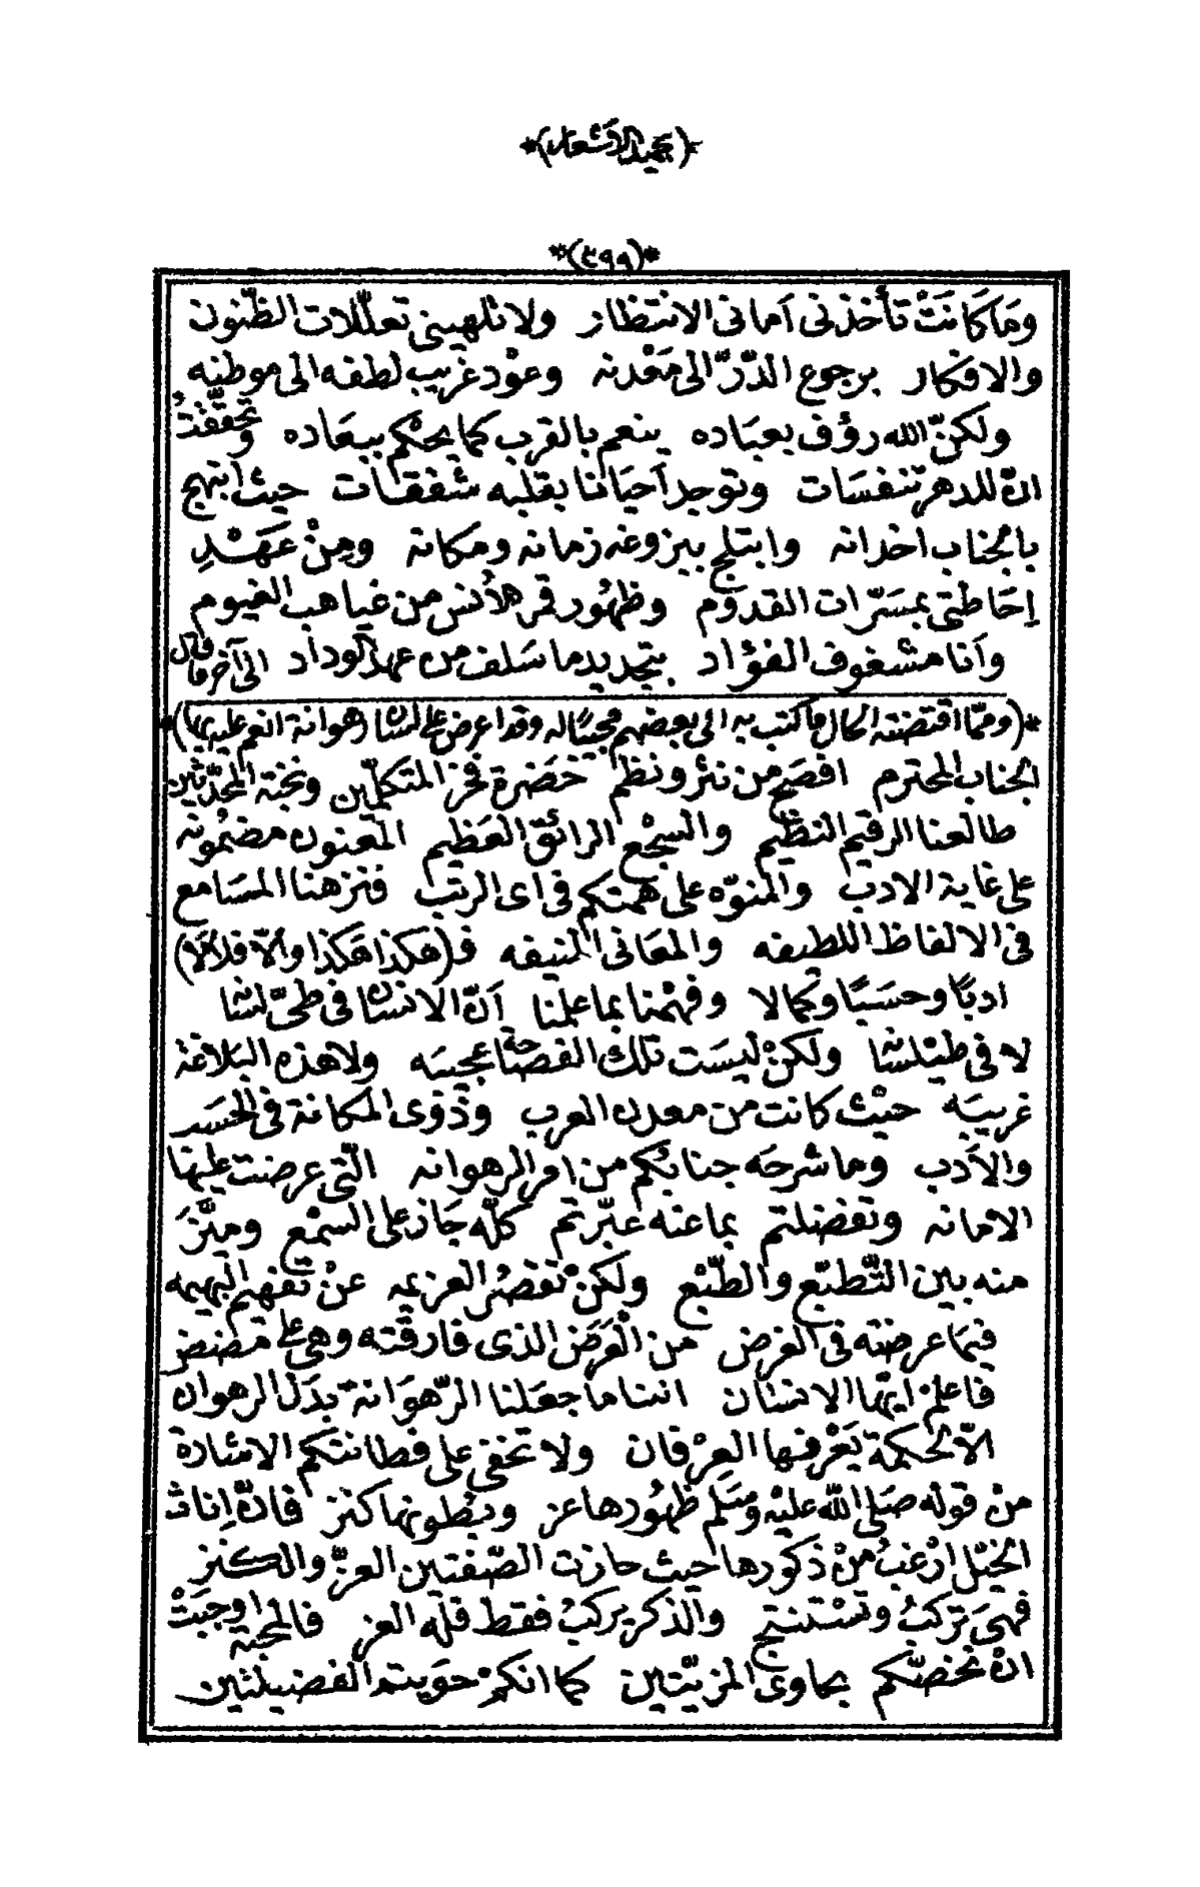 *(مجيد الأشعار)*
*(٢٩٩)*
ومَا كَانَتْ تأخذنى اَمانى الانتظار ولا تلهينى تعلّلات الظّنون
والافكار برجوع الدّرّ الى مَعْدنه وعوْد غريب لطفه الى موطنه
ولكنّ الله رؤف بعبَاده ينعم بالقرب كما يحكم ببعَاده وتحقّقتُ
انّ للدهر تنفسَات وتوجد اَحيَاننا بقلبه شفقات حيث ابتهج
بالجناب اخدانه وابتلج ببزوغه زمانه ومكانه ومِنْ عَهْدِ
اِحَاطتى بمسَرّات القدوم وظهُور قمر الأنس من غياهب الغيوم
وَاَنا مشغوف الفؤاد بتجديد ما سَلف من عهد الوداد الى آخر ما قال
*(وممّا اقتضته الحال ما كتب به الى بعضهم مجيبًا له وقد اعرض على لسان رهوانة انعم عليه بها)*
الجناب المحترم افصَح من نثر ونظم حَضرة فخر المتكلّمين ونخبة المحدّثين
طالعنا الرقيم النظيم والسجْع الرائق العَظيم المعنون مضمُونه
على غاية الادب والمنوّه على همتكم فى اى الرتب فنزهنا المسَامع
فى الالفاظ اللطيفه والمعَانى المنيفه فـ(هكذا هكذا والاّ فلا لا)
ادبًا وحسَبًا وكمالا وفهْمنا بما علمنا اَنّ الانسان فى طىّ لسَانه
لا فى طيْلسانه ولكنْ ليسَت تلك الفصاحة عجيبَه ولا هذه البَلاغة
غريبَه حيْث كانت من معدن العرب وذوى المكانة فى الحسَب
والأدب وما شرحَه جنابُكم من امر الرهوانه الّتى عرضت عليها
الامانه وتفضلتم بما عنه عبّرتم كلّه جَاز على السمْع وميَّزَ
منه بين التّطبّع والطّبْع ولكنْ تقصُر العزيمه عنْ تفهّم البهيمه
فيمَا عرضته فى الغرض من الْعَرَض الذى فارقته وهى على مضض
فاعلمْ ايّها الانسَان اننا ما جعَلنا الرّهوَانة بدَل الرهوان
الاّ لحكمة يَعْرفها العِرْفان ولا تخفى على فطانتكم الاشارة
منْ قوله صَلى الله عليْه وسَلم ظهُورها عز وبُطونها كنز فانّ اِناث
الخيْل ارْغبُ منْ ذكورها حيث حازت الصّفتين العزّ والكنز
فهىَ تركبُ وتسْتنتج والذكر يركبُ فقط فله العز فالمحبة اوجبَتْ
انْ نخصّكم بحاوى المزيّتين كما انكمْ حَويتم الفضيلتين